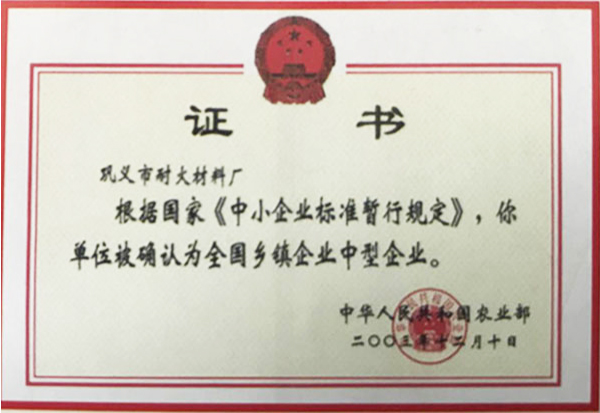 证 书
巩义市耐火材料厂
根据国家《中小企业标准暂行规定》，你
单位被确认为全国乡镇企业中型企业。
中华人民共和国农业部
二〇〇三年十二月十日